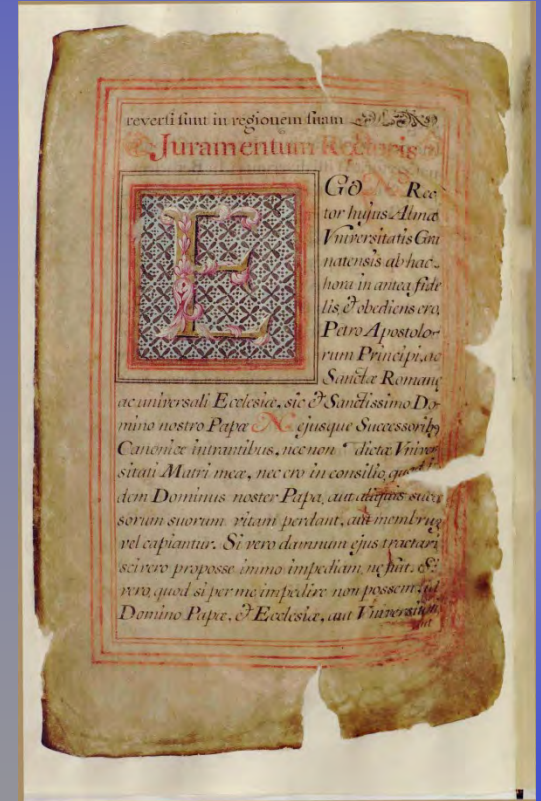 reversi sunt in regionem suam
Juramentum Rectoris
EGO N. Rec
tor hujus Almæ
Vniversitatis Gra
natensis ab hac
hora in antea fide
lis, & obediens ero,
Petro Apostolo-
rum Principi, ac
Sanctæ Romanę
ac universali Ecclesiæ, sic & Sanctissimo Do-
mino nostro Papæ N. ejusque Successoribꝫ
Canonicæ intrantibus, nec non dictæ Vniver
sitati Matri meæ, nec ero in consilio,
dem Dominus noster Papa, aut aliquis succe
sorum suorum vitam perdant, aut membruꝫ
vel capiantur. Si vero damnum ejus tractari
scivero proposse immo impediam, ne fiat. Si
vero, quod si per me impedire non possem,
Domino Papæ, & Ecclesiæ, aut Vniversitati
aut